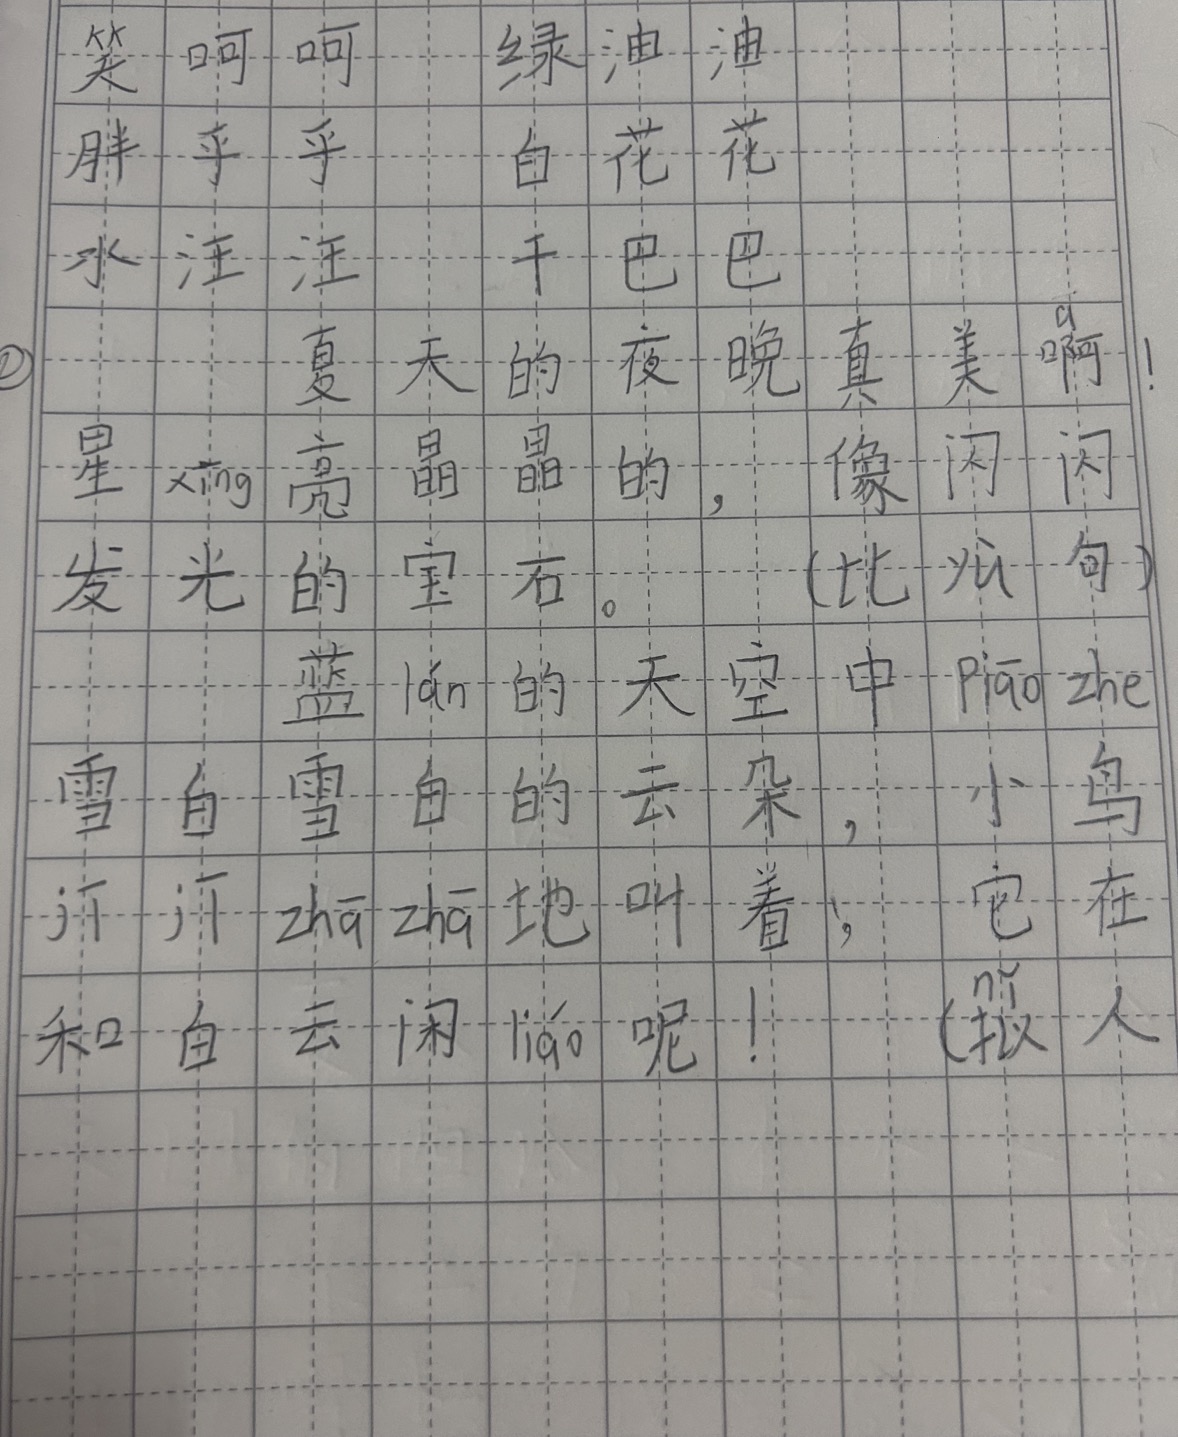 笑呵呵 绿油油
胖乎乎 白花花
水汪汪 干巴巴
夏天的夜晚真美啊ā!
星xīng亮晶晶的，像闪闪
发光的宝石。(比yù句)
蓝lán的天空中Piāo zhe
雪白雪白的云朵，小鸟
zhā zhā地叫着，它在
和白云闲liáo呢! (拟nǐ人